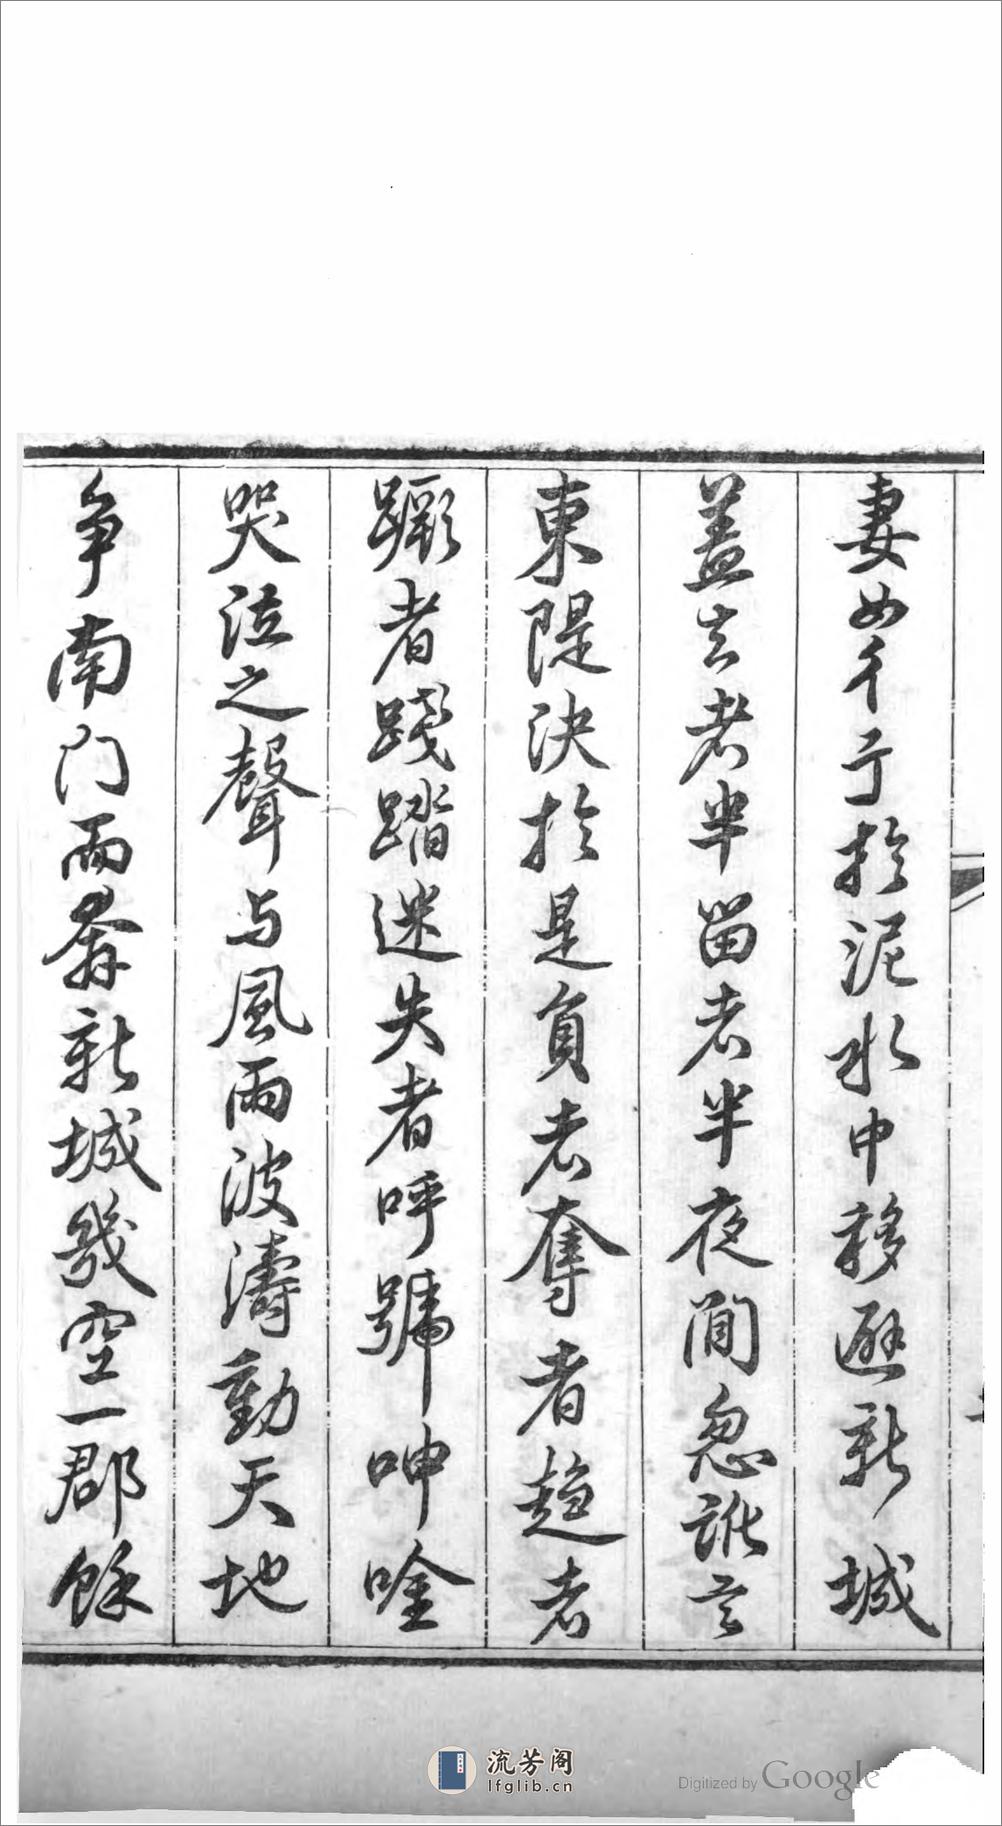 妻女彳亍於泥水中移避新城
蓋去者半留者半夜間忽訛言
東隄決於是負者奪者趨者
蹶者踐踏迷失者呼號呻唫
哭泣之聲与風雨波濤動天地
爭南門而奔新城幾空一郡餘
流芳阁
lfglib.cn
Digitized by Google